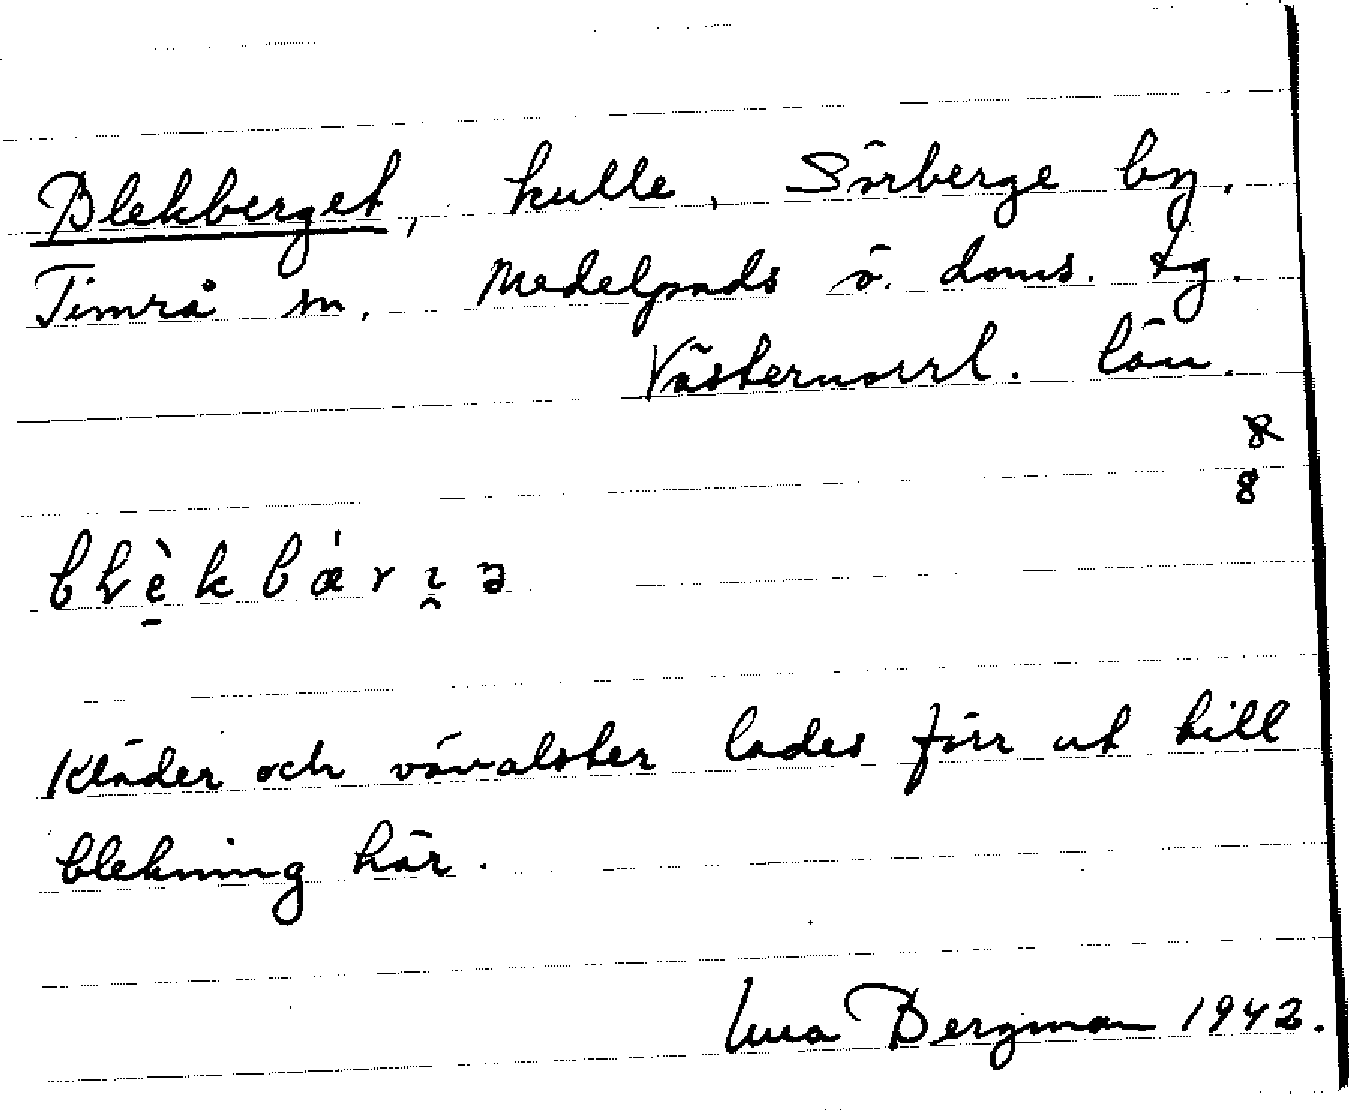 Blekberget, kulle, Sörberge by.
Timrå sn. Medelpads ö. doms. tg.
Västernorrl. län.
8
8
Kläder och vävalster lades förr ut till
blekning här.
Bergman 1942.